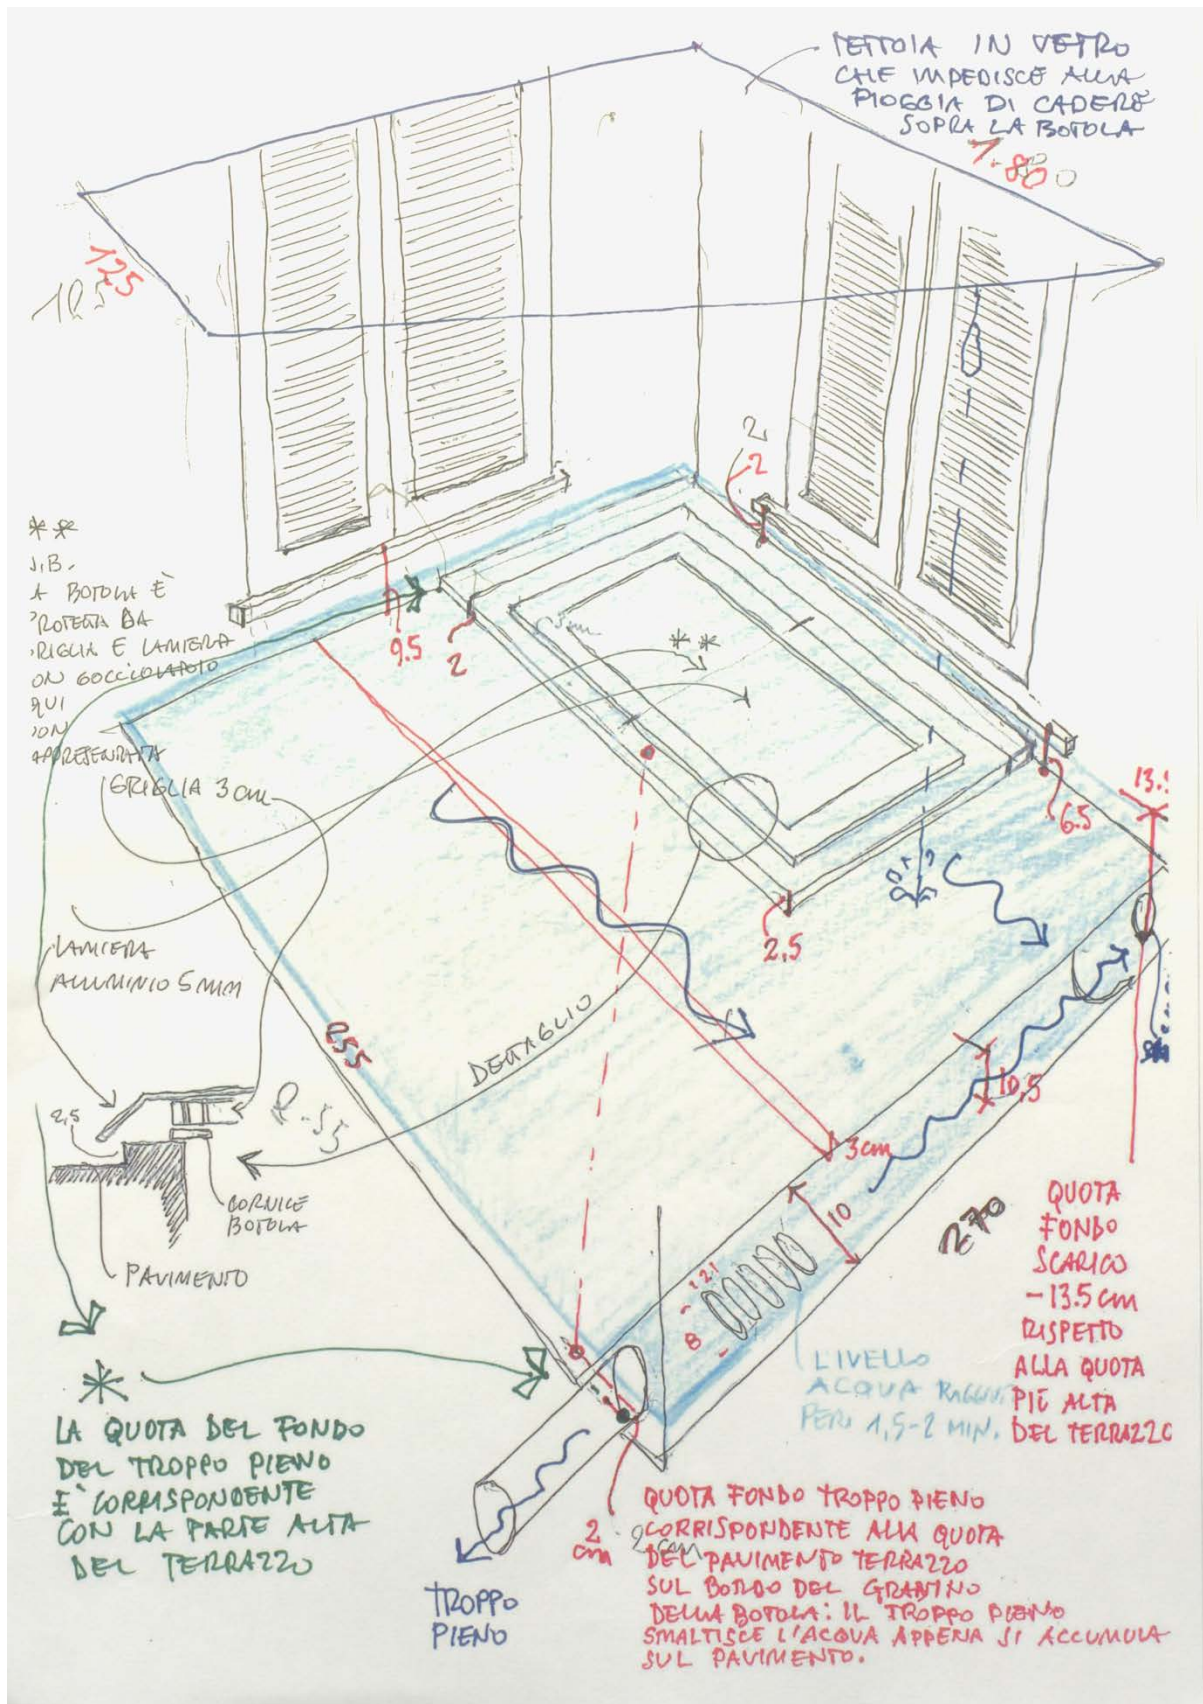 TETTOIA IN VETRO
CHE IMPEDISCE ALLA
PIOGGIA DI CADERE
SOPRA LA BOTOLA
1.80
125
2
2
**
N.B.
A BOTOLA È
ROTETTA DA
RIGLIA E LAMIERA
ON GOCCIOLATOIO
QUI
ON
APPRESENTATA
9.5
2
3cm
**
GRIGLIA 3 cm
6.5
13.
2,5
LAMIERA
ALLUMINIO 5 MM
255
DETTAGLIO
10,5
2,5
2.55
CORNICE
BOTOLA
PAVIMENTO
3cm
10
270
8
QUOTA
FONDO
SCARICO
-13.5 cm
RISPETTO
ALLA QUOTA
PIÙ ALTA
DEL TERRAZZO
LIVELLO
ACQUA
PER 1,5-2 MIN.
*
LA QUOTA DEL FONDO
DEL TROPPO PIENO
È CORRISPONDENTE
CON LA PARTE ALTA
DEL TERRAZZO
2
cm
2 cm
TROPPO
PIENO
QUOTA FONDO TROPPO PIENO
CORRISPONDENTE ALLA QUOTA
DEL PAVIMENTO TERRAZZO
SUL BORDO DEL GRADINO
DELLA BOTOLA: IL TROPPO PIENO
SMALTISCE L'ACQUA APPENA SI ACCUMULA
SUL PAVIMENTO.